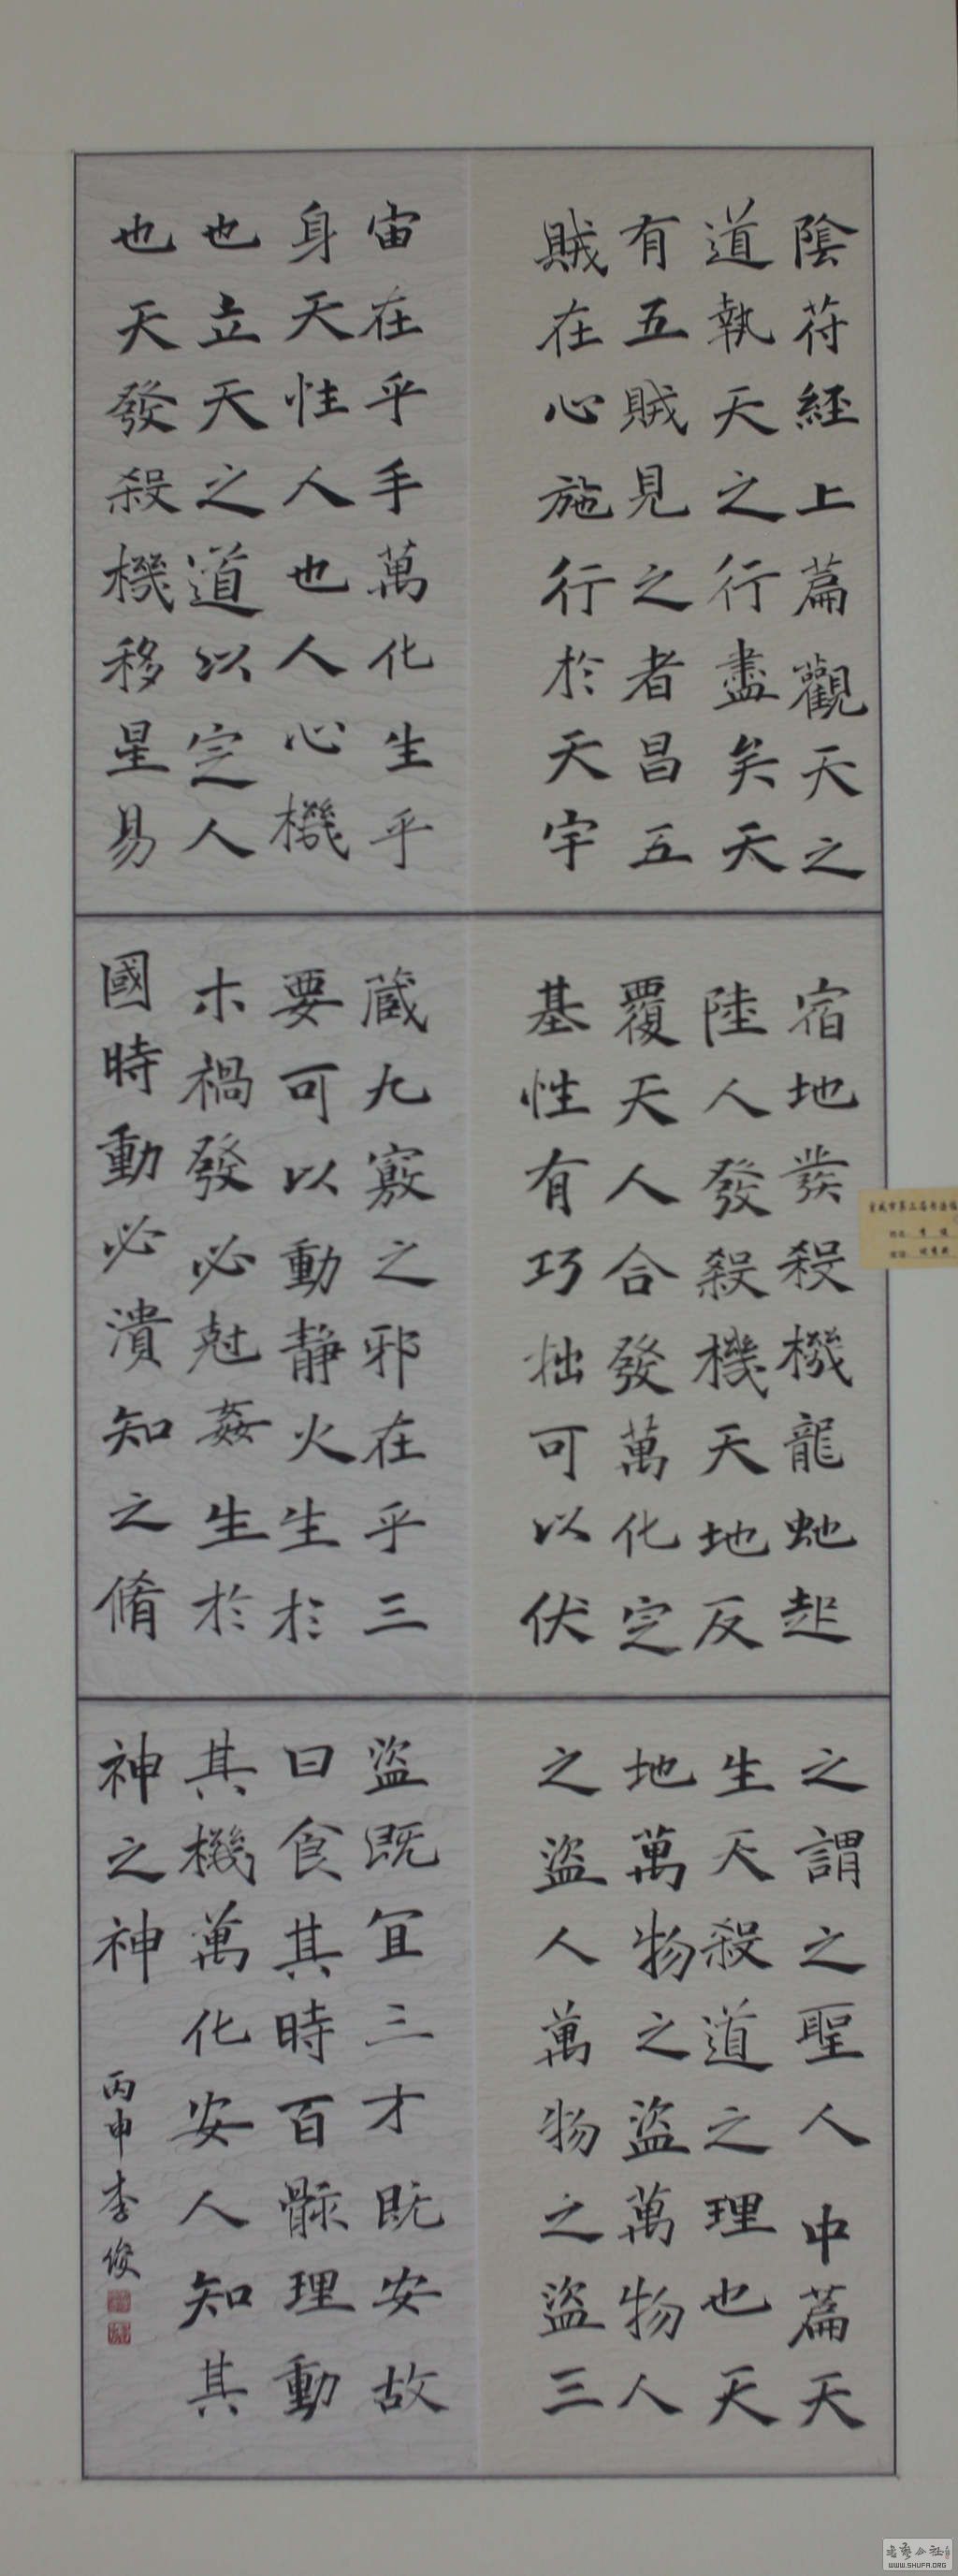 陰符經上篇觀天之
道執天之行盡矣天
有五賊見之者昌五
賊在心施行於天宇
宙在乎手萬化生乎
身天性人也人心機
也立天之道以定人
也天發殺機移星易
宿地發殺機龍虵起
陸人發殺機天地反
覆天人合發萬化定
基性有巧拙可以伏
蔵九竅之邪在乎三
要可以動静火生於
木禍發必尅姦生於
國時動必潰知之脩
之謂之聖人中篇天
生天殺道之理也天
地萬物之盜萬物人
之盜人萬物之盜三
盜既冝三才既安故
曰食其時百骸理動
其機萬化安人知其
神之神
丙申李俊
WWW.SHUFA.ORG